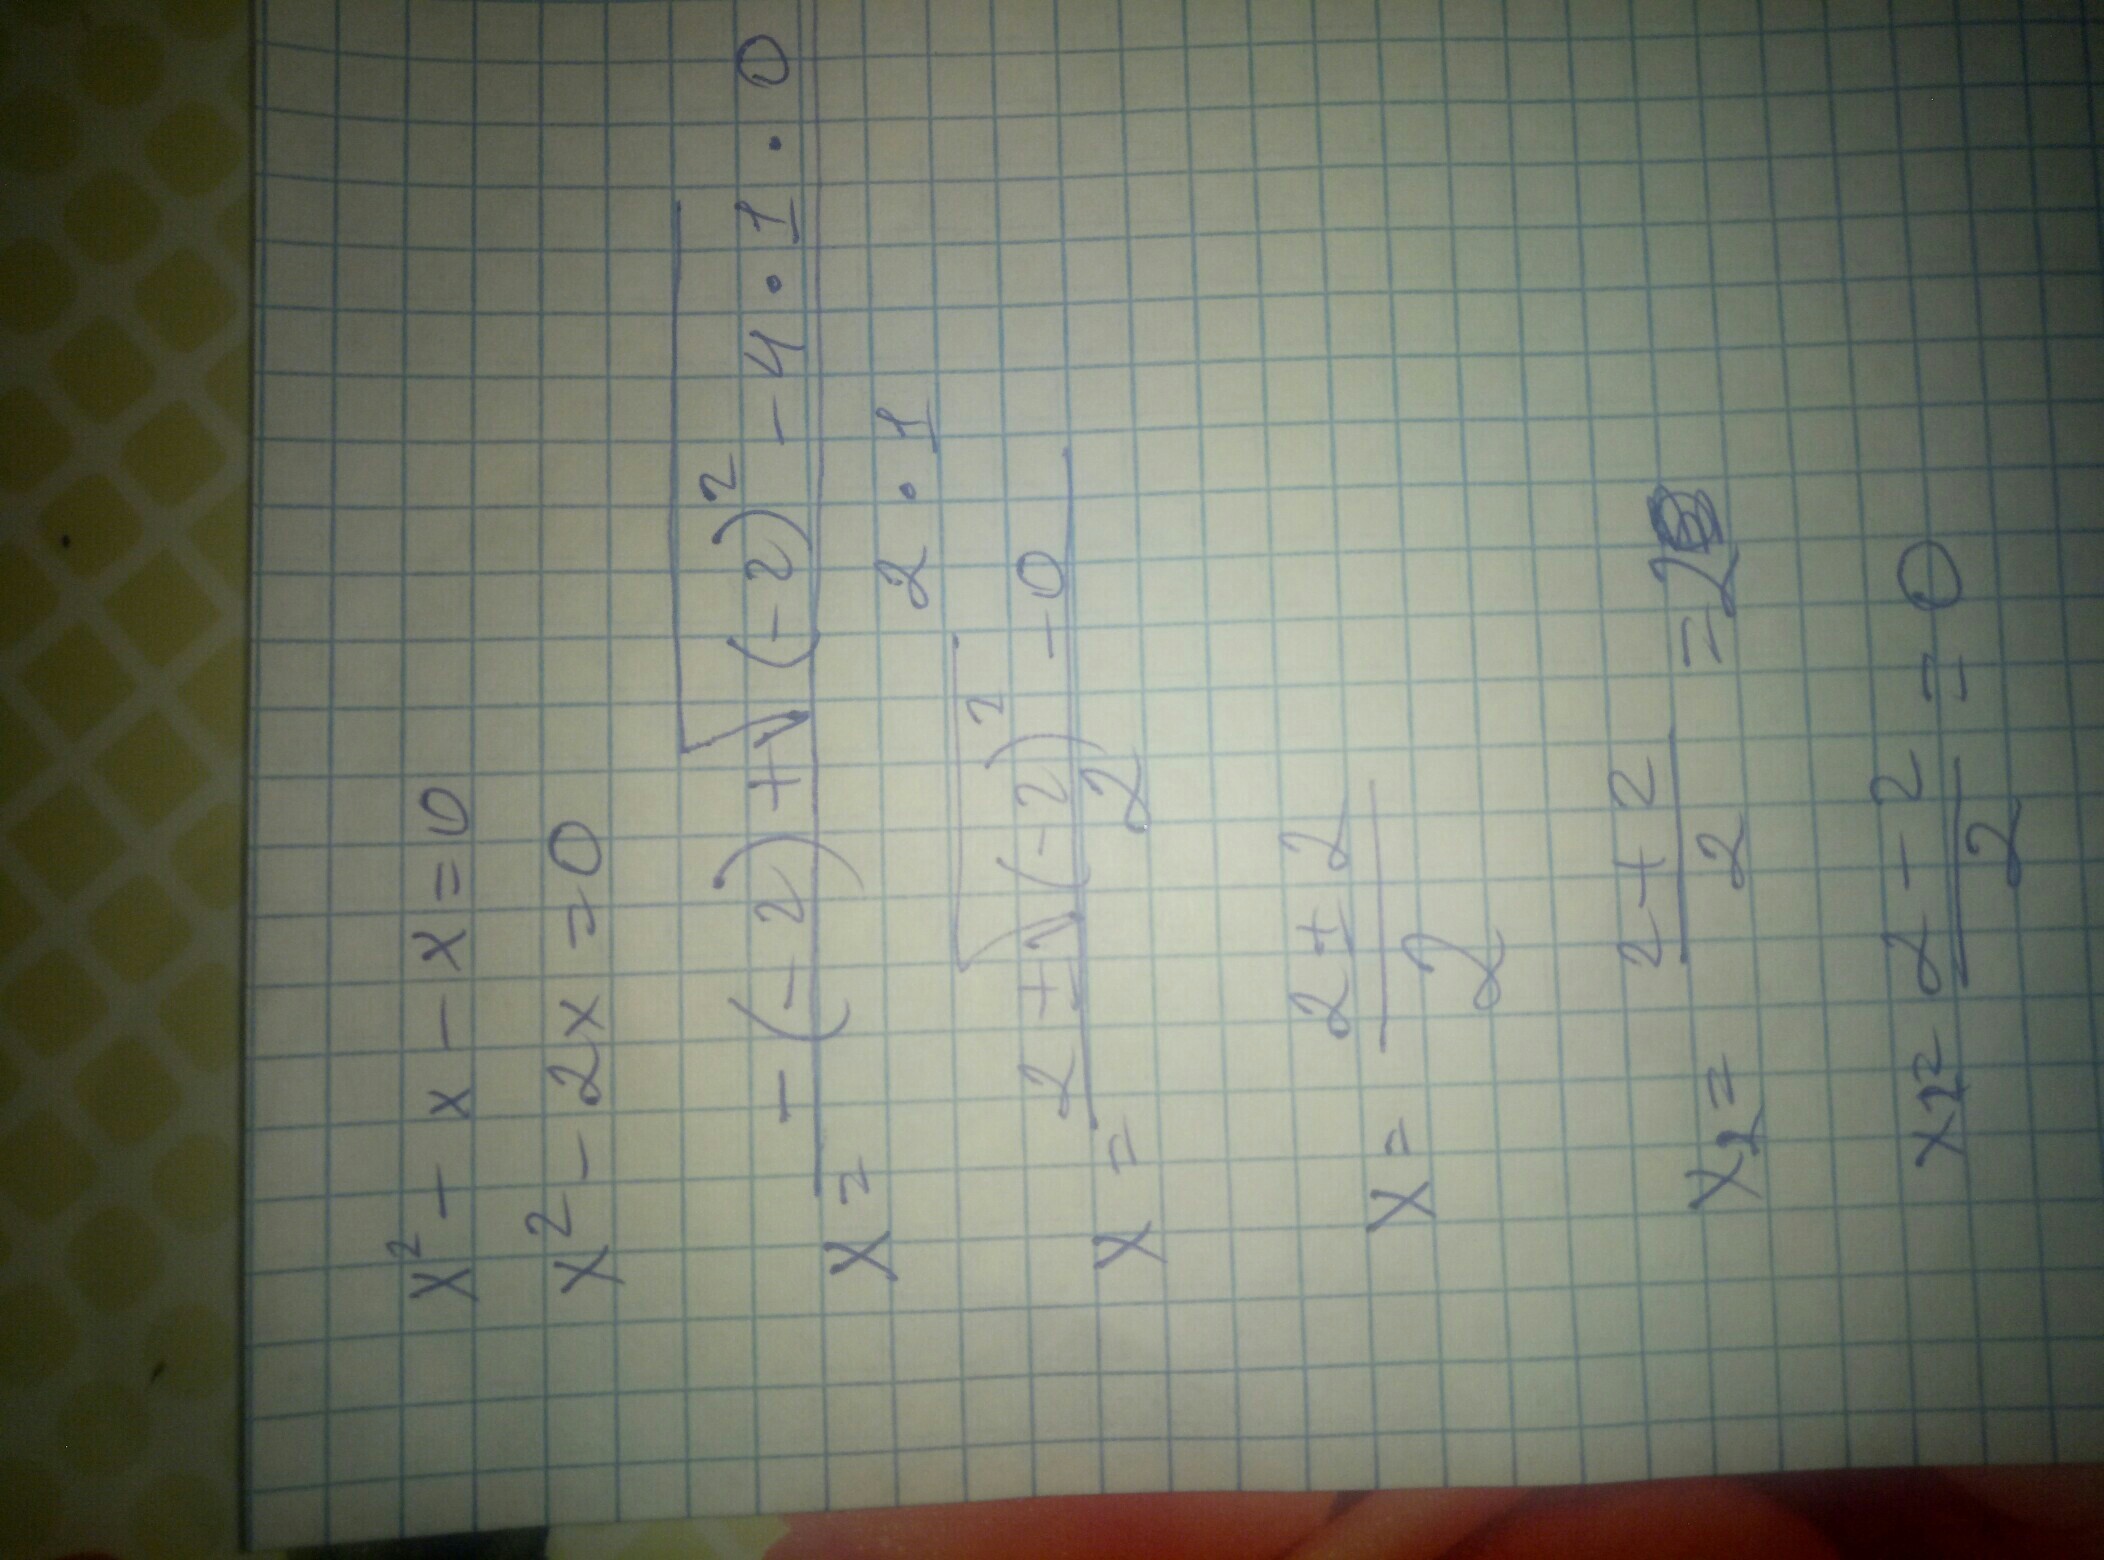 x² - x - x = 0
x² - 2x = 0
x = -(-2) + √(-2)² - 4 · 1 · 0
2 · 1
x = 2 ± √(-2)² - 0
2
x = 2 ± 2
2
x₁ = 2 + 2 = 2
2
x₂ = 2 - 2 = 0
2